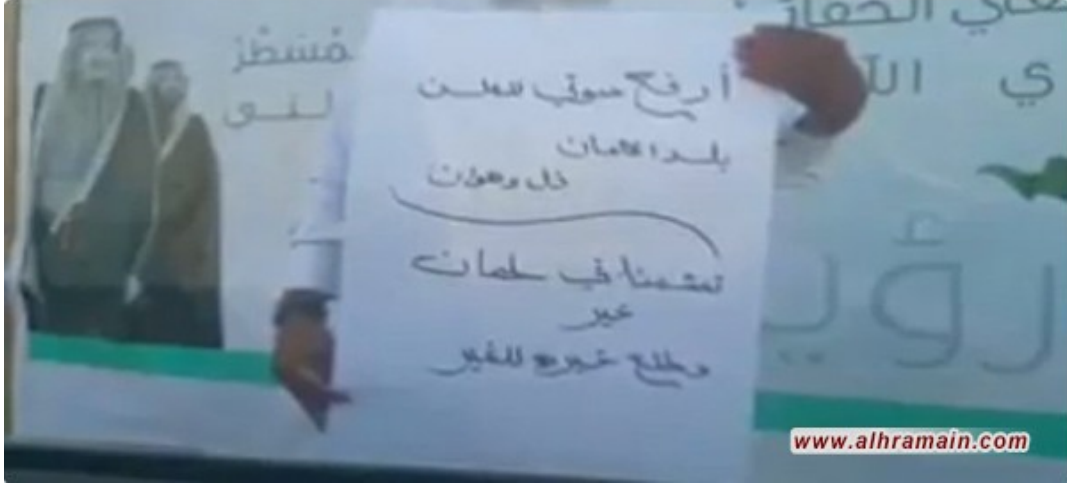 أرفع صوتي للعلن
بلد الامان
ذل وهوان
تعشمنا في سلمان
غير
وطلع خيره للغير
رؤي
www.alhramain.com